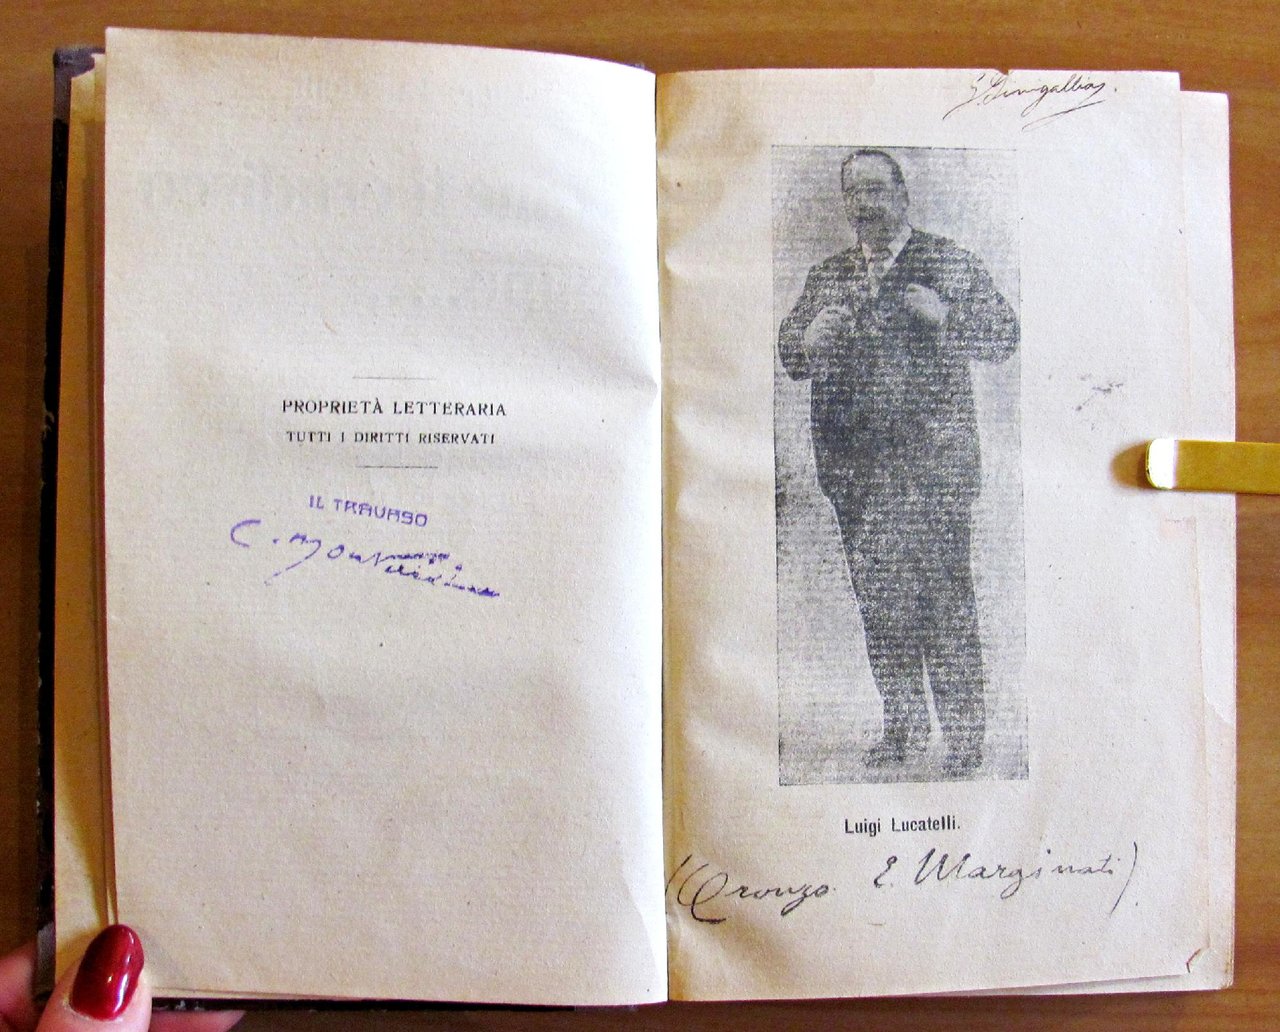 PROPRIETÀ LETTERARIA
TUTTI I DIRITTI RISERVATI
IL TRAVASO
C. Montani
Luigi Lucatelli.
(Oronzo E. Marginati)